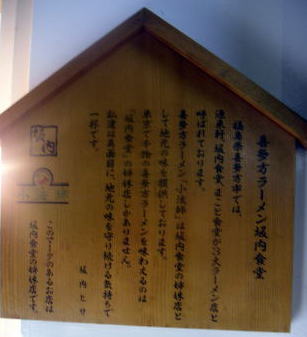 喜多方ラーメン坂内食堂
福島県喜多方市では、
源来軒、坂内食堂、まこと食堂が3大ラーメン店と
呼ばれております。
喜多方ラーメン「小法師」は坂内食堂の姉妹店と
して地元の味を提供しております。
東京で本物の喜多方ラーメンを味わえるのは
「坂内食堂」の姉妹店しかありません。
私達は真面目に、地元の味を守り続ける気持ちで
一杯です。
坂内ヒサ
坂内
このマークのあるお店は
坂内食堂の姉妹店です。